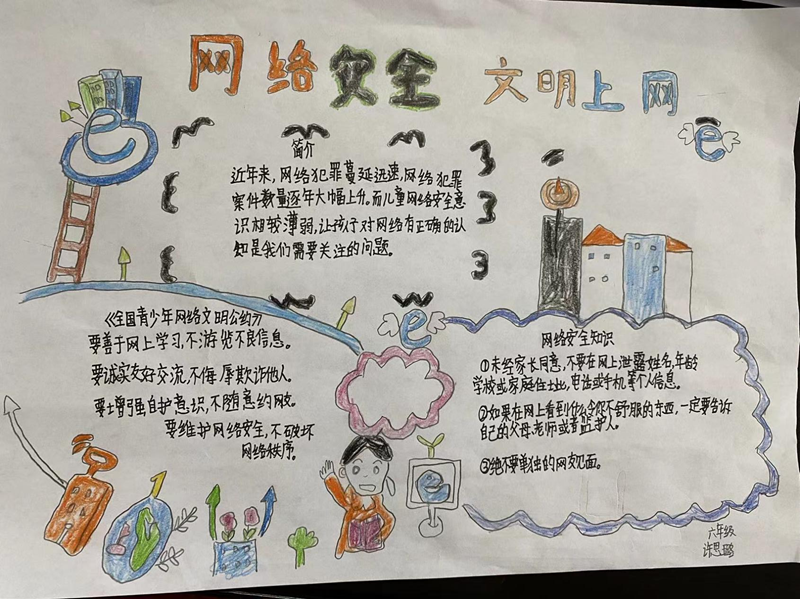 网络安全 文明上网
简介
近年来,网络犯罪蔓延迅速,网络犯罪
案件数量逐年大幅上升。而儿童网络安全意
识相较薄弱,让孩子对网络有正确的认
知是我们需要关注的问题。
《全国青少年网络文明公约》
要善于网上学习,不游览不良信息。
要诚实友好交流,不侮辱欺诈他人。
要增强自护意识,不随意约网友。
要维护网络安全,不破坏
网络秩序。
网络安全知识
①未经家长同意,不要在网上泄露姓名,年龄
学校或家庭住址,电话或手机等个人信息。
②如果在网上看到什么令你不舒服的东西,一定要告诉
自己的父母,老师或者监护人。
③绝不要单独的网友见面。
六年级